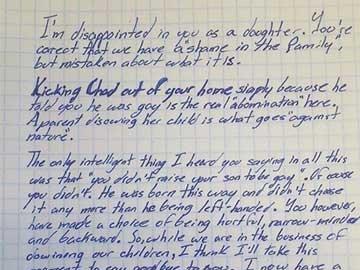 I'm disappointed in you as a daughter. You're
correct that we have a "shame in the family",
but mistaken about what it is.
Kicking Chad out of your home simply because he
told you he was gay is the real "abomination" here.
A parent disowning her child is what goes "against
nature".
The only intelligent thing I heard you saying in all this
was that "you didn't raise your son to be gay". Of course
you didn't. He was born this way and didn't choose
it any more than he being left-handed. You however,
have made a choice of being hurtful, narrow-minded
and backward. So, while we are in the business of
disowning our children, I think I'll take this
moment to say goodbye to you. I now have a